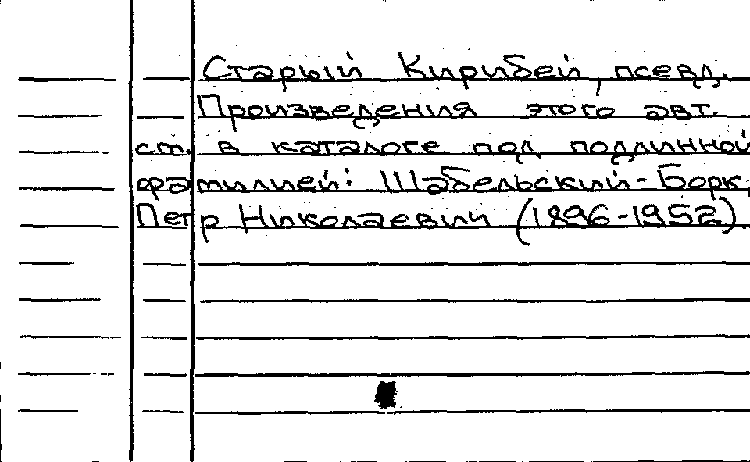 Старый Кирибей, псевд.
Произведения этого авт.
см. в каталоге под подлинной
фамилией: Шабельский-Борк,
Петр Николаевич (1896-1952).